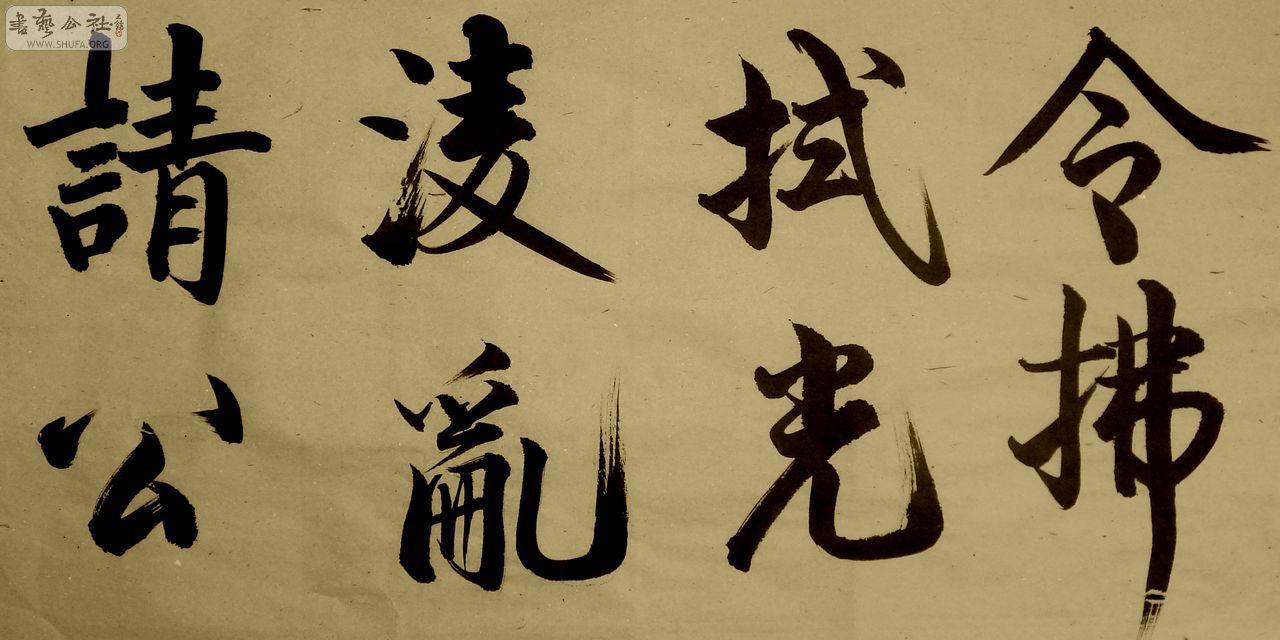 令拂
拭光
凌亂
請公
書藝公社
WWW.SHUFA.ORG